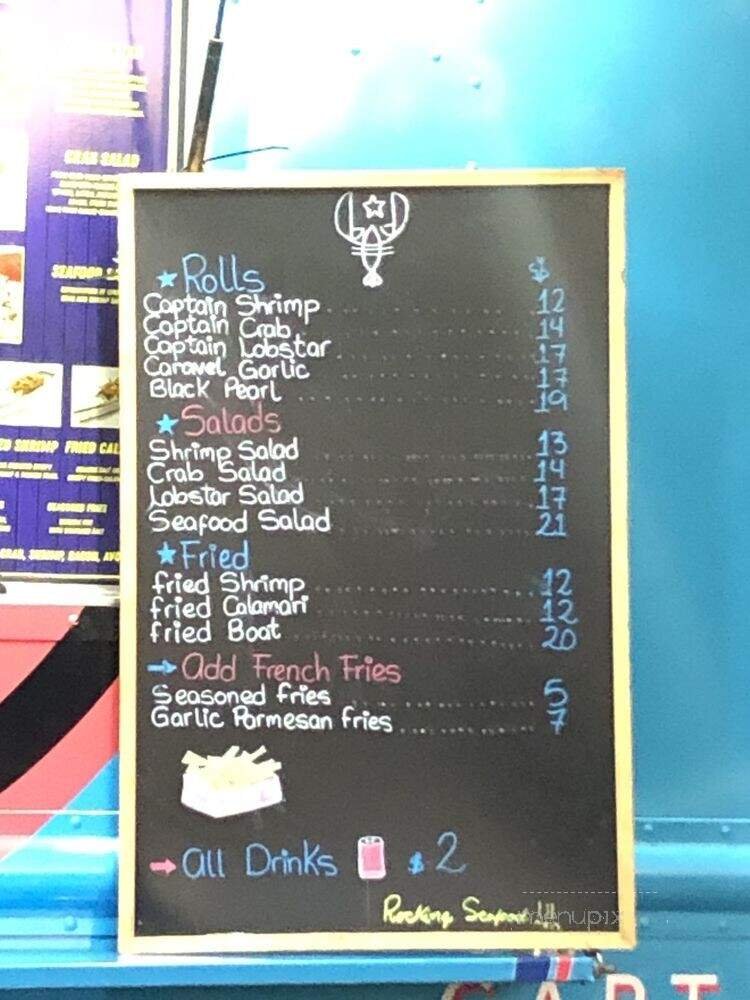 CRAB SALAD
SEAFOOD
FRIED CAL
SEASONED FRIES
CRAB, SHRIMP, BACON, AVO
Rolls $
Captain Shrimp 12
Captain Crab 14
Captain Lobstar 17
Caravel Garlic 17
Black Pearl 19
Salads
Shrimp Salad 13
Crab Salad 14
Lobstar Salad 17
Seafood Salad 21
Fried
fried Shrimp 12
fried Calamari 12
fried Boat 20
Add French Fries
Seasoned fries 5
Garlic Parmesan fries 7
All Drinks $ 2
Rocking Seafood!!!
menupix
CAPT